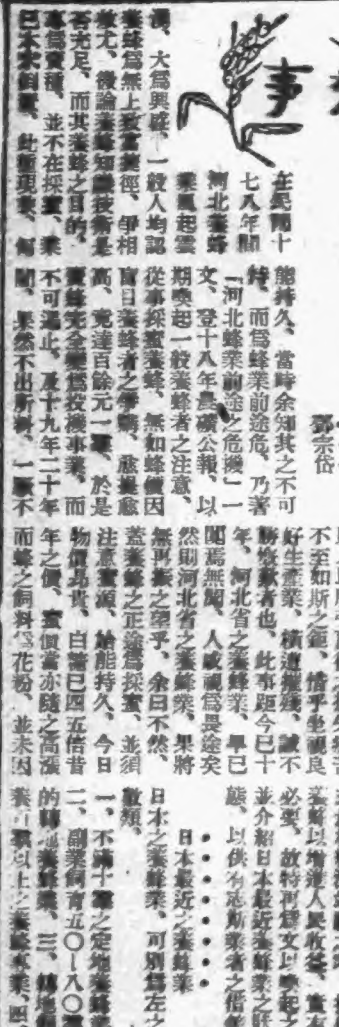 事
鄧宗岱
在民國十
七八年間
河北養蜂
業風起雲
湧、大為興旺、一般人均認
養蜂為無上致富捷徑、爭相
效尤、論養蜂知識技術是
否充足、而其養蜂之目的、
專為賣種、並不在採蜜、業
已本末倒置、此種現象、何
能持久、當時余知其之不可
恃、而爲蜂業前途危、乃著
「河北蜂業前途之危機」一
文、登十八年農礦公報、以
期喚起一般養蜂者之注意、
從事採蜜養蜂、無如蜂價因
盲目養蜂者之爭購、愈提愈
高、竟達百餘元一羣、於是
養蜂完全變爲投機事業、而
不可遏止、及十九年二十年
間、果然不出所料、一羣不
不至如斯之鉅、惜乎坐視良
好生產業、橫遭摧殘、誠不
勝慨歎者也、此事距今已十
年、河北省之養蜂業、早已
焉無聞、人咸視爲畏途矣
然則河北省之養蜂業、果將
無再振之望乎、余曰不然、
蓋養蜂之正途爲採蜜、並須
注意蜜源、始能持久、今日
物價昂貴、白糖已四五倍昔
年之價、蜜價當亦隨之高漲
而蜂之飼料爲花粉、並未因
養蜂以增進人民收益、實有
必要、故特再爲文以喚起之
並介紹日本最近養蜂業之狀
態、以供有志斯業者之借鏡
日本最近之養蜂業
日本之養蜂業、可別爲左之
數類、
一、不滿十羣之定地養蜂業
二、副業飼育五〇—八〇羣
的轉地養蜂業、三、轉地飼
養百羣以上之養蜂專業、四